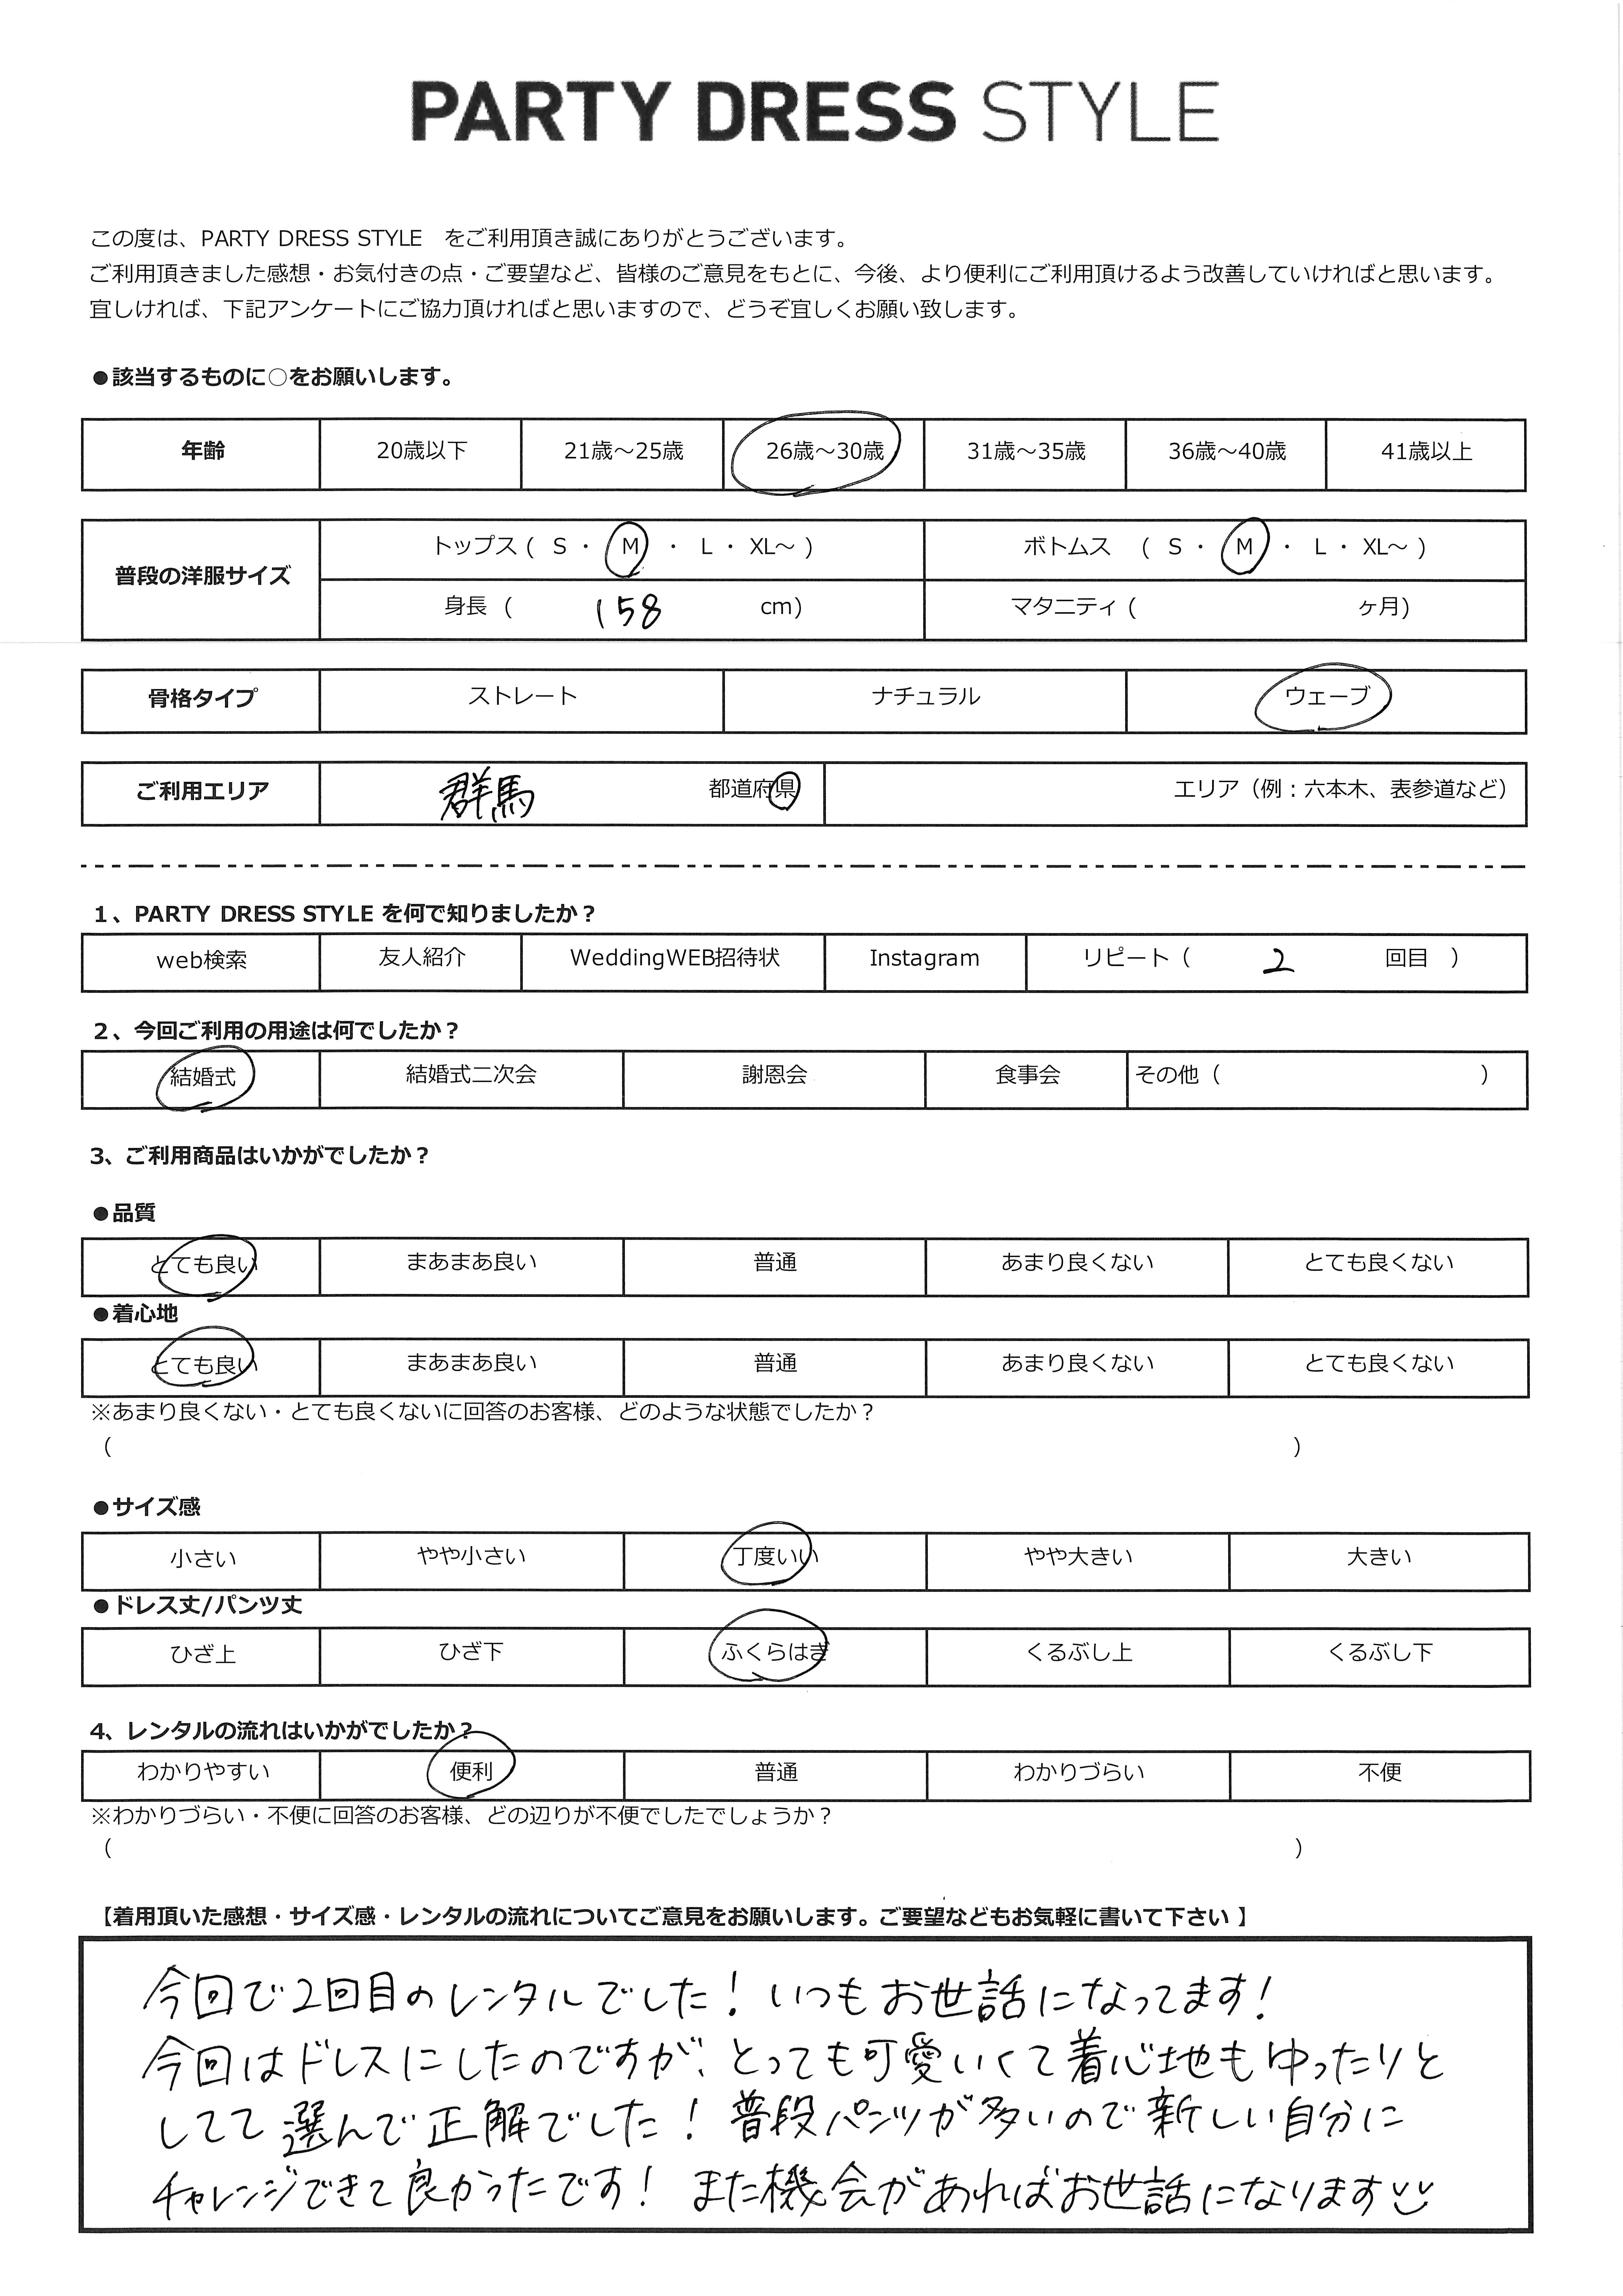 PARTY DRESS STYLE
この度は、PARTY DRESS STYLE　をご利用頂き誠にありがとうございます。
ご利用頂きました感想・お気付きの点・ご要望など、皆様のご意見をもとに、今後、より便利にご利用頂けるよう改善していければと思います。
宜しければ、下記アンケートにご協力頂ければと思いますので、どうぞ宜しくお願い致します。
●該当するものに○をお願いします。
年齢 20歳以下 21歳～25歳 26歳～30歳 31歳～35歳 36歳～40歳 41歳以上
普段の洋服サイズ トップス ( S ・ M ・ L ・ XL～ ) ボトムス ( S ・ M ・ L ・ XL～ )
身長 ( 158 cm) マタニティ ( ヶ月)
骨格タイプ ストレート ナチュラル ウェーブ
ご利用エリア 群馬 都道府県 エリア（例：六本木、表参道など）
1、PARTY DRESS STYLE を何で知りましたか？
web検索 友人紹介 WeddingWEB招待状 Instagram リピート（ 2 回目 ）
2、今回ご利用の用途は何でしたか？
結婚式 結婚式二次会 謝恩会 食事会 その他（ ）
3、ご利用商品はいかがでしたか？
●品質
とても良い まあまあ良い 普通 あまり良くない とても良くない
●着心地
とても良い まあまあ良い 普通 あまり良くない とても良くない
※あまり良くない・とても良くないに回答のお客様、どのような状態でしたか？
（ ）
●サイズ感
小さい やや小さい 丁度いい やや大きい 大きい
●ドレス丈/パンツ丈
ひざ上 ひざ下 ふくらはぎ くるぶし上 くるぶし下
4、レンタルの流れはいかがでしたか？
わかりやすい 便利 普通 わかりづらい 不便
※わかりづらい・不便に回答のお客様、どの辺りが不便でしたでしょうか？
（ ）
【着用頂いた感想・サイズ感・レンタルの流れについてご意見をお願いします。ご要望などもお気軽に書いて下さい 】
今回で2回目のレンタルでした！いつもお世話になってます！
今回はドレスにしたのですが、とっても可愛いくて着心地もゆったりと
してて選んで正解でした！普段パンツが多いので新しい自分に
チャレンジできて良かったです！また機会があればお世話になります